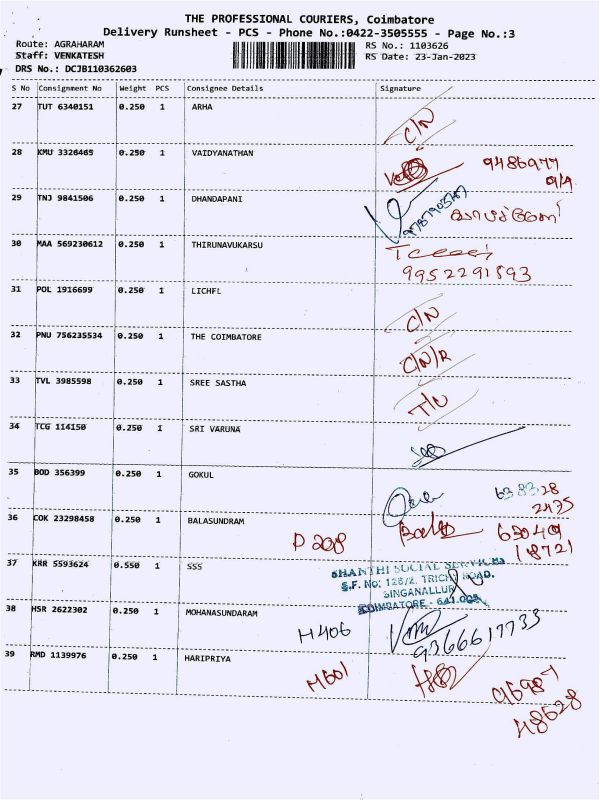 THE PROFESSIONAL COURIERS, Coimbatore
Delivery Runsheet - PCS - Phone No.:0422-3505555 - Page No.:3
Route: AGRAHARAM
RS No.: 1103626
Staff: VENKATESH
RS Date: 23-Jan-2023
DRS No.: DCJB110362603
S No Consignment No Weight PCS Consignee Details Signature
27 TUT 6340151 0.250 1 ARHA C/N
28 KMU 3326465 0.250 1 VAIDYANATHAN 9486977
29 TNJ 9841506 0.250 1 DHANDAPANI
30 MAA 569230612 0.250 1 THIRUNAVUKARSU
9952291893
31 POL 1916699 0.250 1 LICHFL C/N
32 PNU 756235534 0.250 1 THE COIMBATORE C/N/R
33 TVL 3985598 0.250 1 SREE SASTHA T/N
34 TCG 114150 0.250 1 SRI VARUNA
35 BOD 356399 0.250 1 GOKUL 638328
2475
36 COK 23298458 0.250 1 BALASUNDRAM D 208 63049
18721
37 KRR 5593624 0.550 1 SSS
SHANTHI SOCIAL SERVICES
S.F. No: 128/2. TRICHY ROAD.
SINGANALLUR
COIMBATORE - 641 005
38 HSR 2622302 0.250 1 MOHANASUNDARAM H406 9366617733
39 RMD 1139976 0.250 1 HARIPRIYA M601